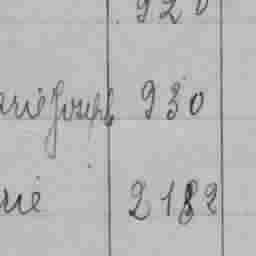 920
arie Joseph 930
rie 2182